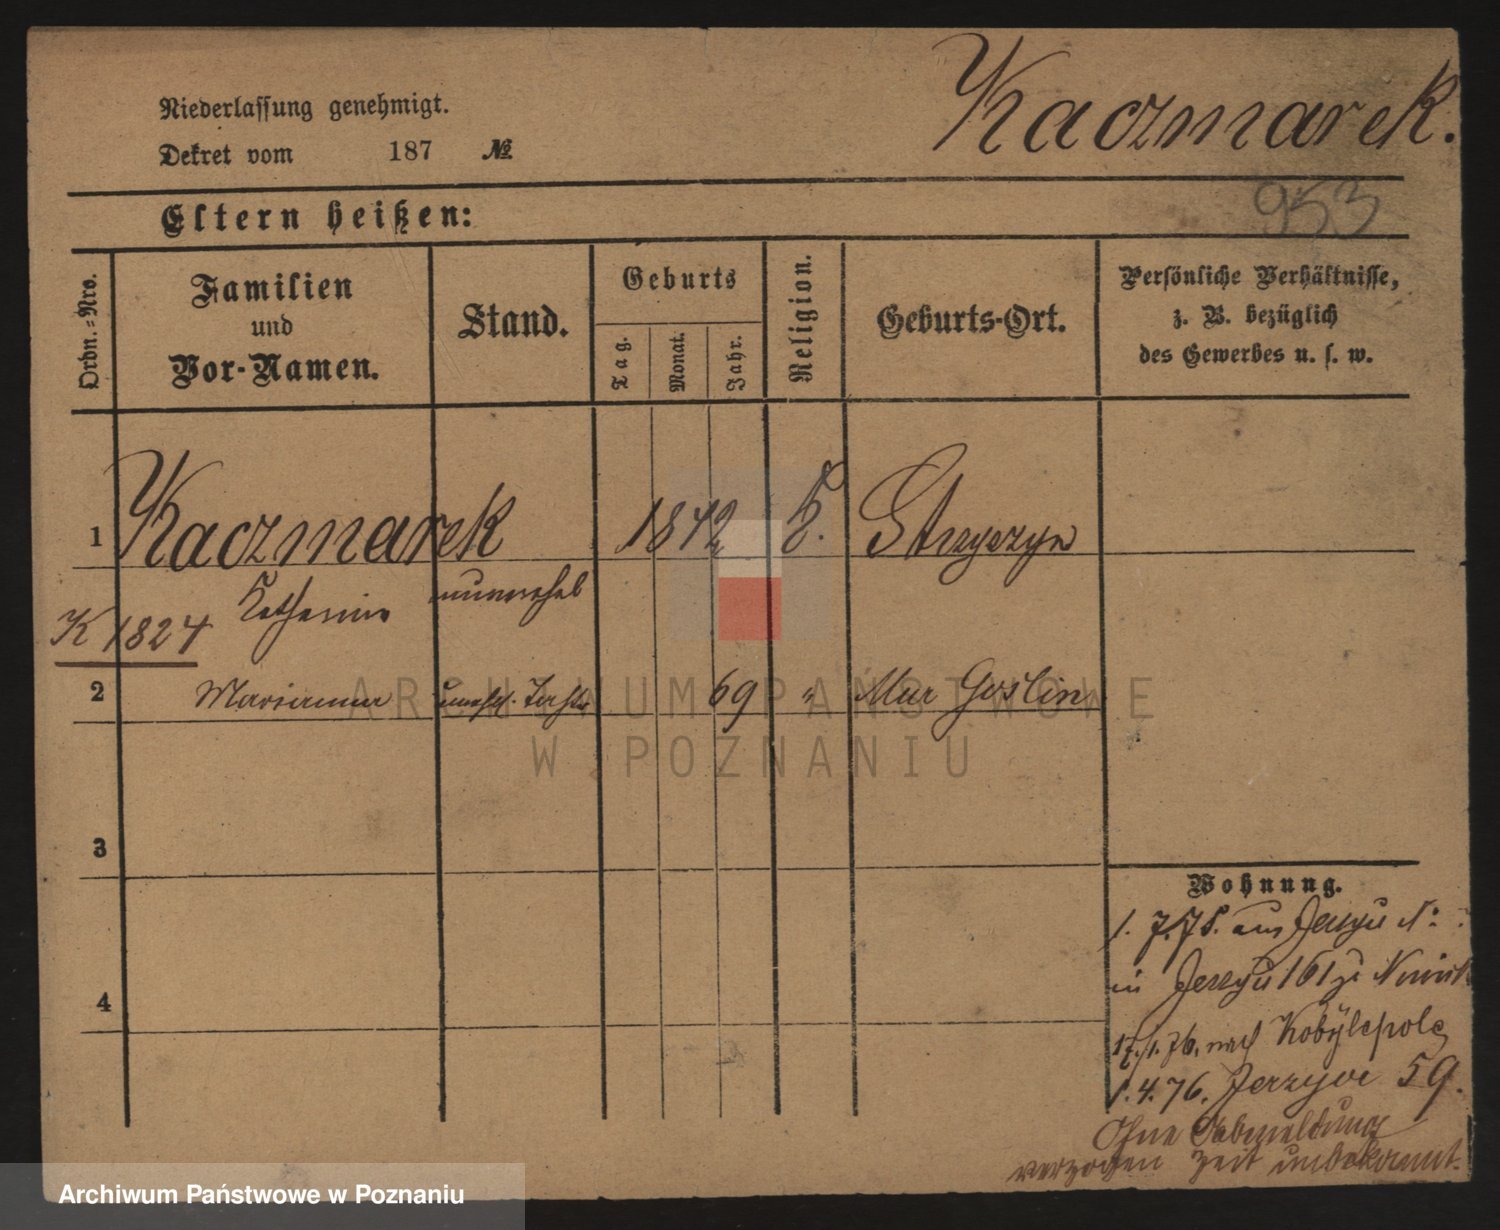 Kaczmarek.
Niederlassung genehmigt.
Dekret vom 187 №
953
Eltern heißen:
Ordn.-Nro.
Familien und Vor-Namen.
Stand.
Geburts
Tag.
Monat.
Jahr.
Religion.
Geburts-Ort.
Persönliche Verhältnisse,
z. B. bezüglich
des Gewerbes u. s. w.
1 Kaczmarek 1842 k. Stryczyn
Katharina unverehel
K 1824
2 Marianna unehel. Tochter 69 " Mur Goslin
3
Wohnung.
1. 7.75. aus Jerzyce N:
in Jerzyce 161
4
17.1.76. nach Kobylepole
1.4.76. Jerzyce 59.
Ohne Abmeldung
verzogen Zeit unbekannt.
ARCHIWUM PAŃSTWOWE
W POZNANIU
Archiwum Państwowe w Poznaniu